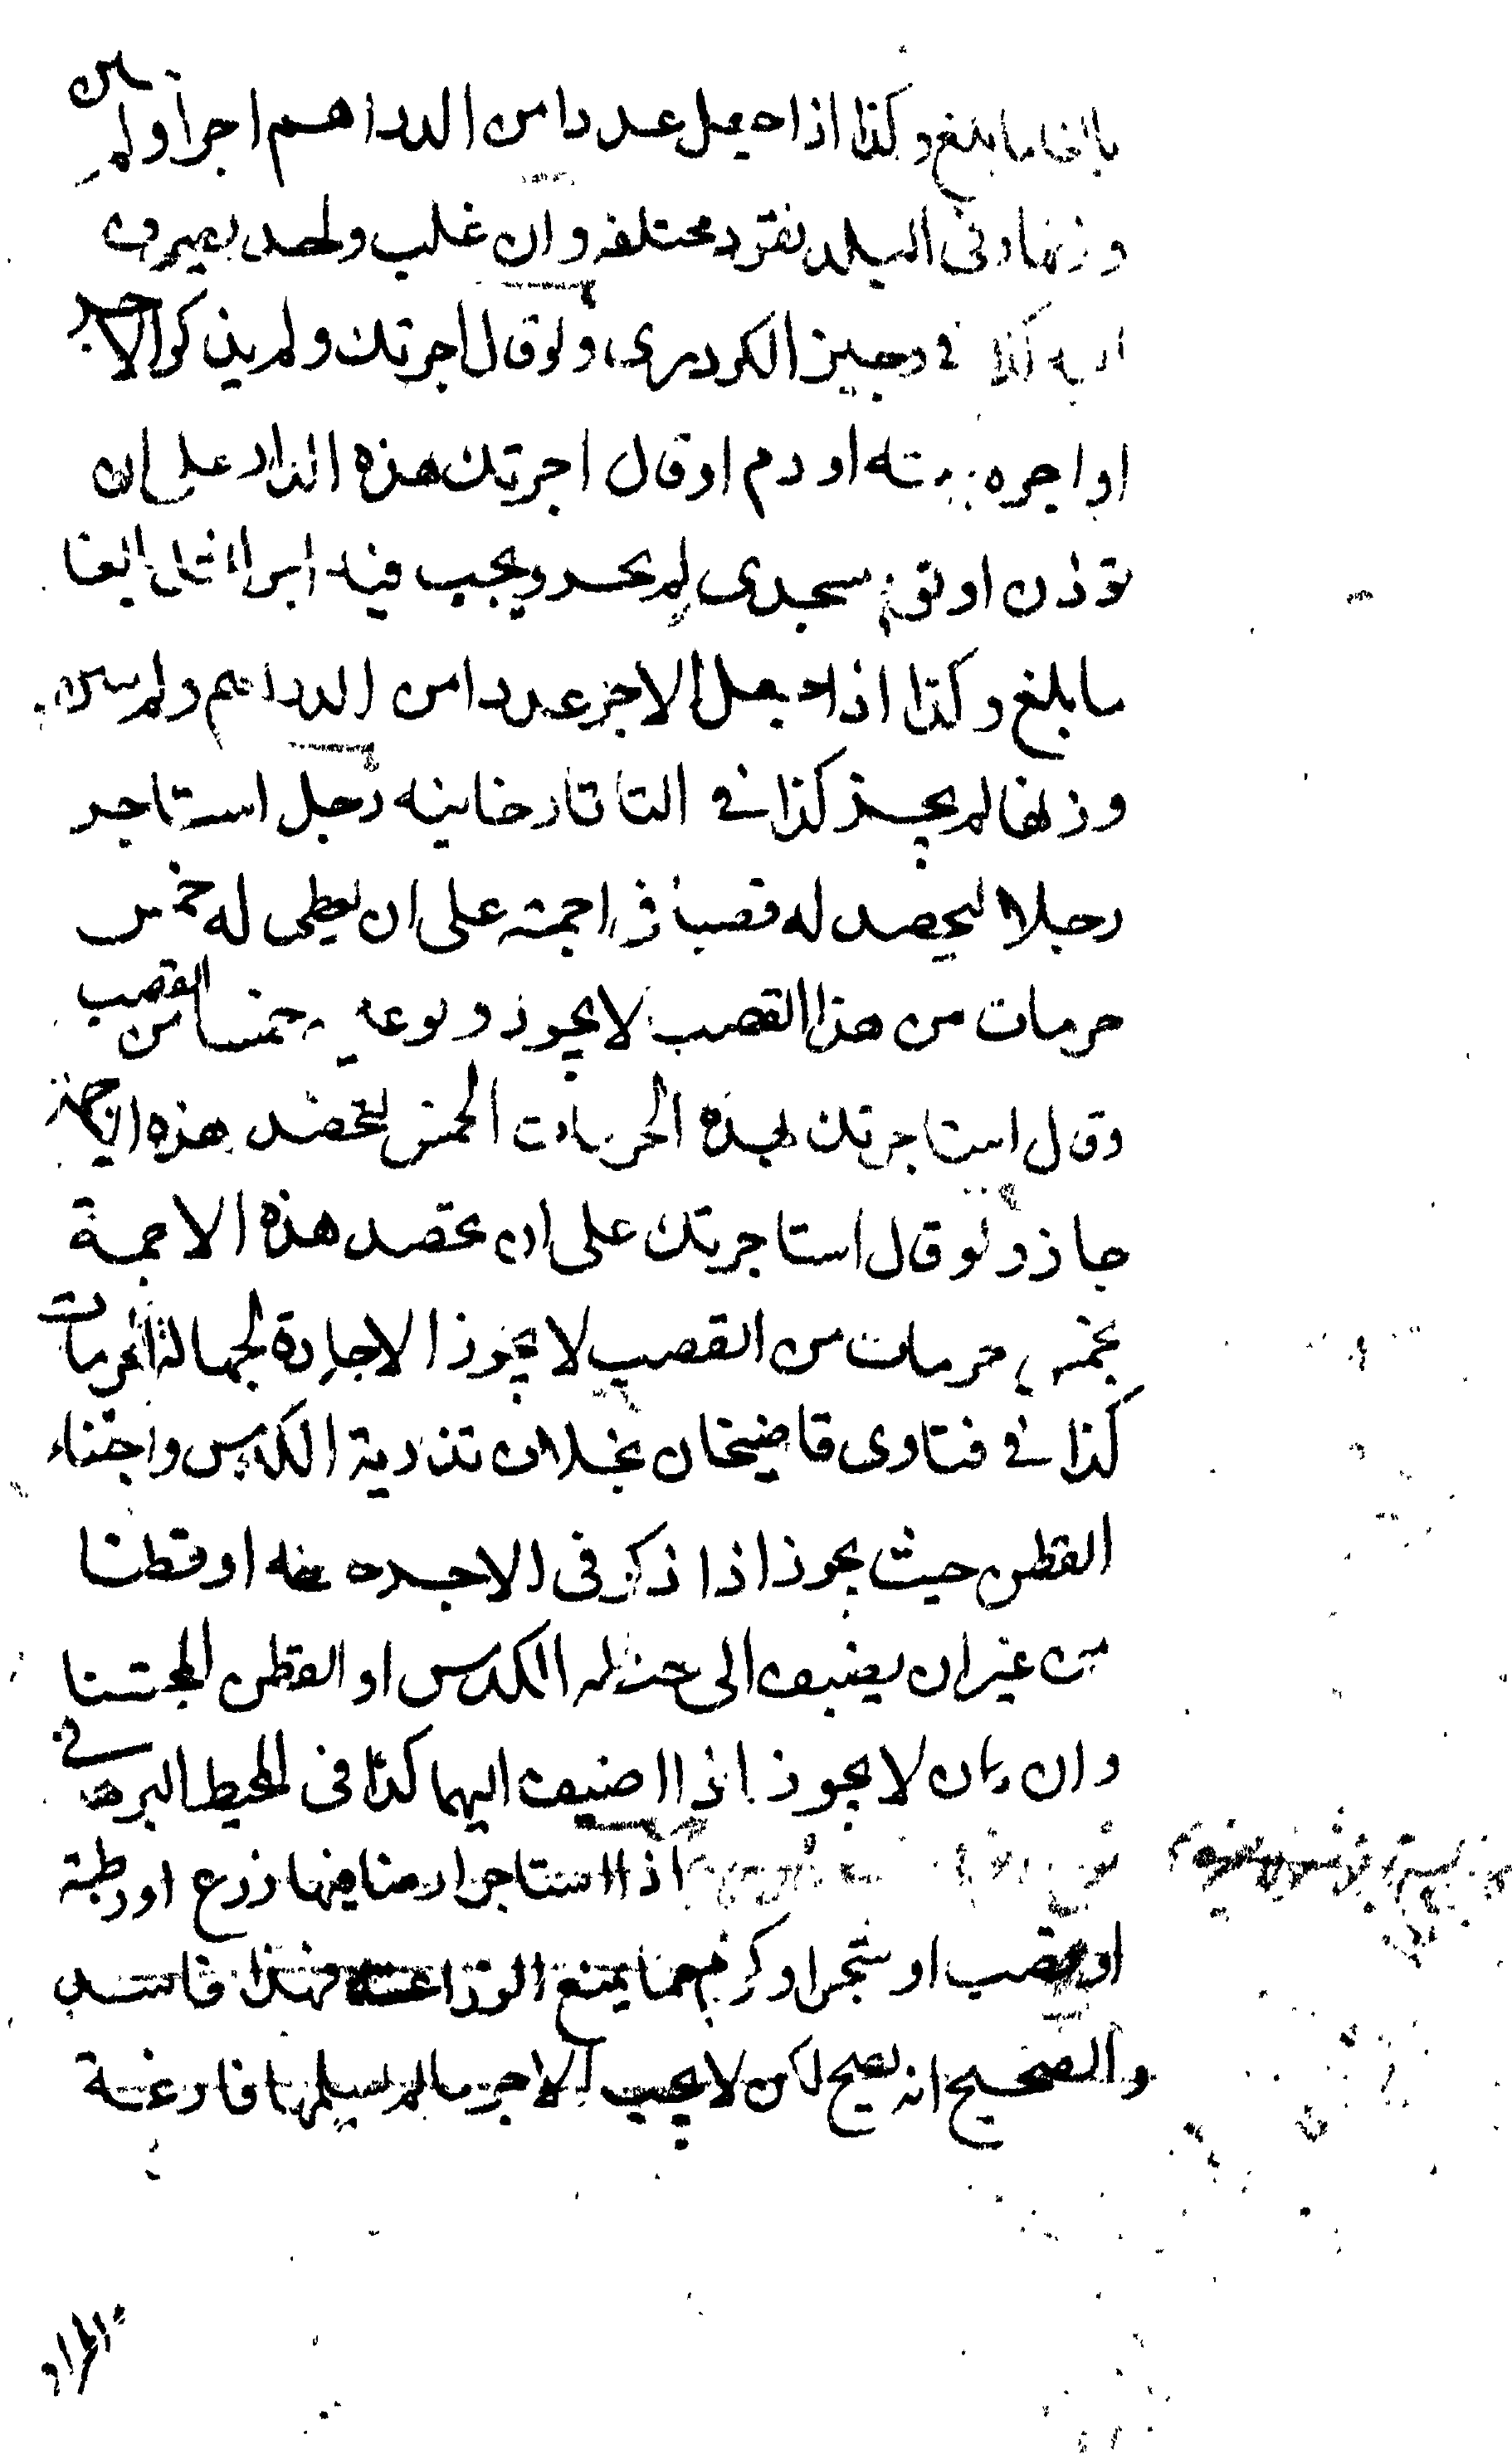 بالغا ما بلغ وكذا اذا جعل عددا من الدراهم اجرا ولم يبين
وزنها وفى البلد نقود مختلفه وان غلب واحد يصرف
اليه كذا في وجيز الكردرى ولو قال اجرتك ولم يذكر الاجر
او اجره بميته او دم او قال اجرتك هذه الدار على ان
توذن او تؤم مسجدى لم يجز ويجب فيه اجر المثل بالغا
ما بلغ وكذا اذا جعل الاجر عددا من الدراهم ولم يبين
وزنها لم يجز كذا في التاتارخانيه رجل استاجر
رجلا ليحصد له قصبا في اجمته على ان يعطى له خمس
حزمات من هذا القصب لا يجوز ولو عين خمسا من القصب
وقال استاجرتك بهذه الحزمات الخمس لتحصد هذه الاجمة
جاز ولو قال استاجرتك على ان تحصد هذه الاجمة
بخمس حزمات من القصب لا يجوز الاجارة لجهالة الحزمات
كذا في فتاوى قاضيخان بخلاف تذرية الكدس واجتناء
القطن حيث يجوز اذا ذكر فى الاجره اوقطنا
من غير ان يضيف الى حنطه الكدس او القطن المجتنا
وان كان لا يجوز اذا اضيف اليهما كذا فى المحيط البرهانى
اذا استاجر ارضا فيها زرع او رطبة
او قصب او شجر او كرم مما يمنع الزراعة فهذا فاسد
والصحيح انه يصح لكن لا يجب الاجر ما لم يسلمها فارغة